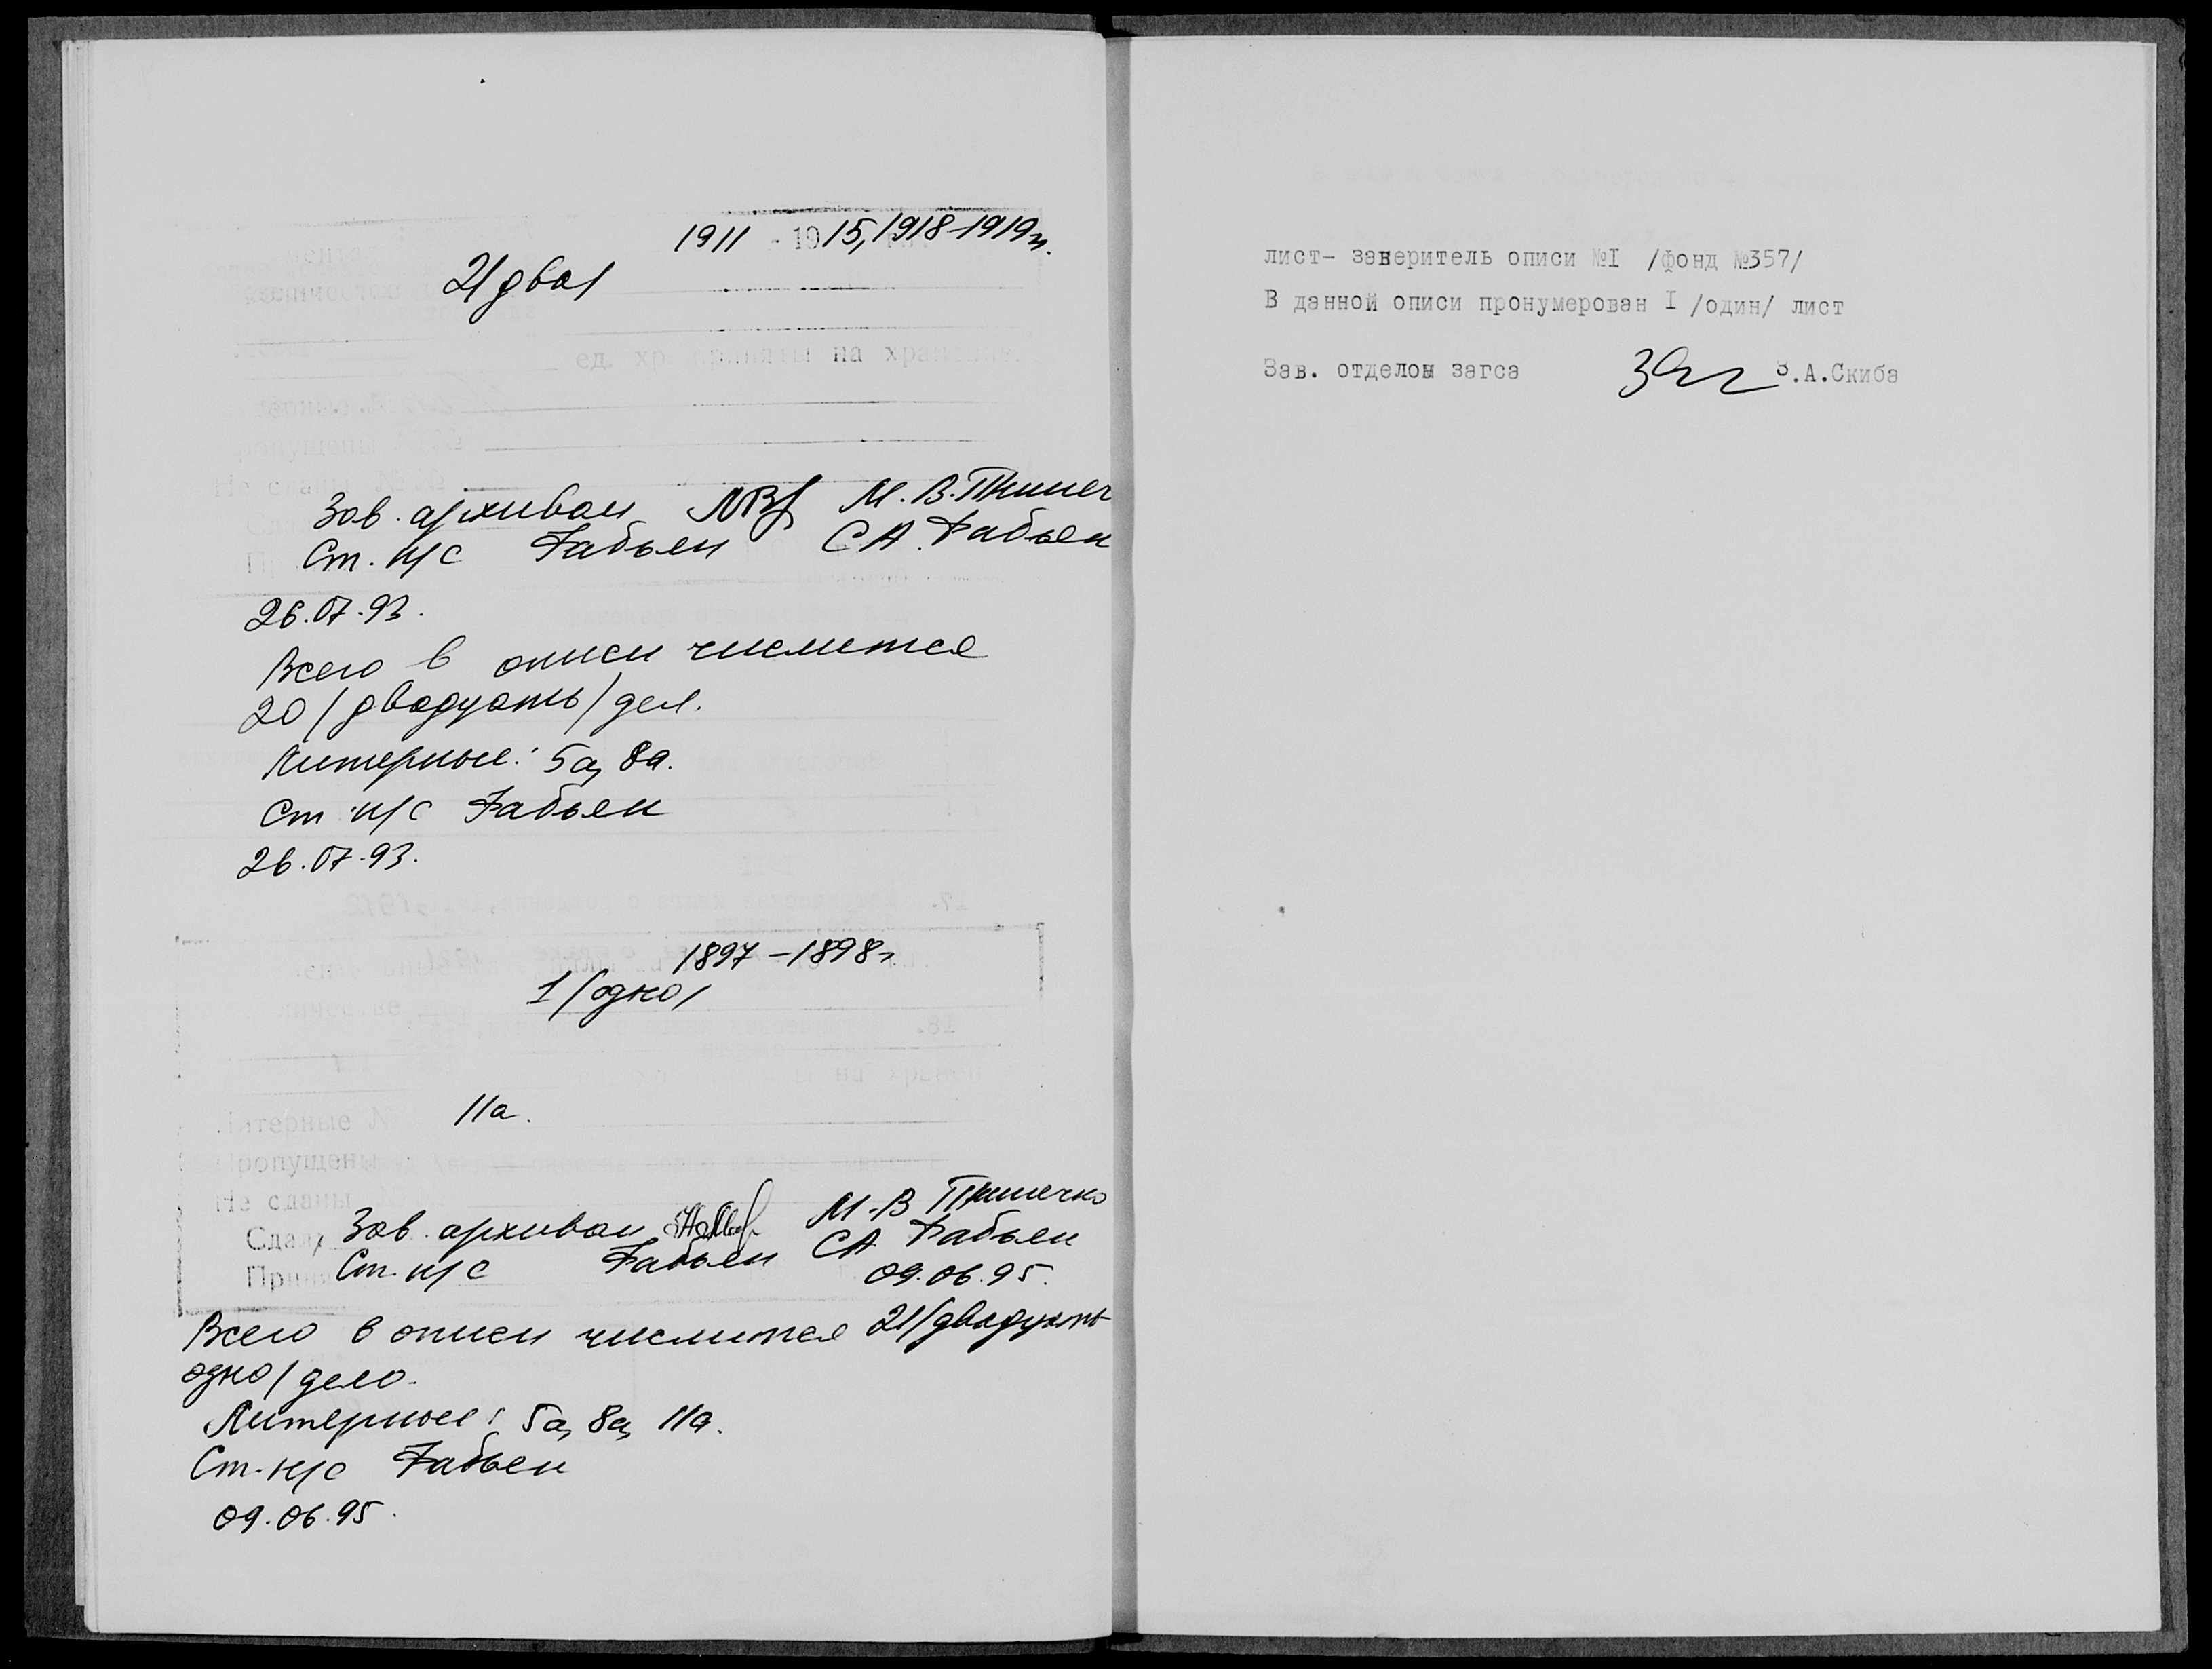 1911 - 1915, 1918-1919гг.
2/два/
ед. хр. приняты на хранение.
пропущены
Не сданы
Зав. архивом М.В.
Ст. н/с Бабьен С.А. Бабьен
26.07.93.
Всего в описи числится
20 /двадцать/ дел.
Литерные: 5а, 8а.
Ст н/с Бабьен
26.07.93.
1897 - 1898г
1 /одно/
Литерные №
11а.
Пропущены
Не сданы
Сдал
Зав. архивом М.В
Ст. н/с Бабьен С.А. Бабьен
09.06.95.
Всего в описи числится 21 /двадцать
одно/ дело.
Литерные: 5а, 8а, 11а.
Ст. н/с Бабьен
09.06.95.
лист- заверитель описи №I /фонд №357/
В данной описи пронумерован I /один/ лист
Зав. отделом загса З.А.Скиба